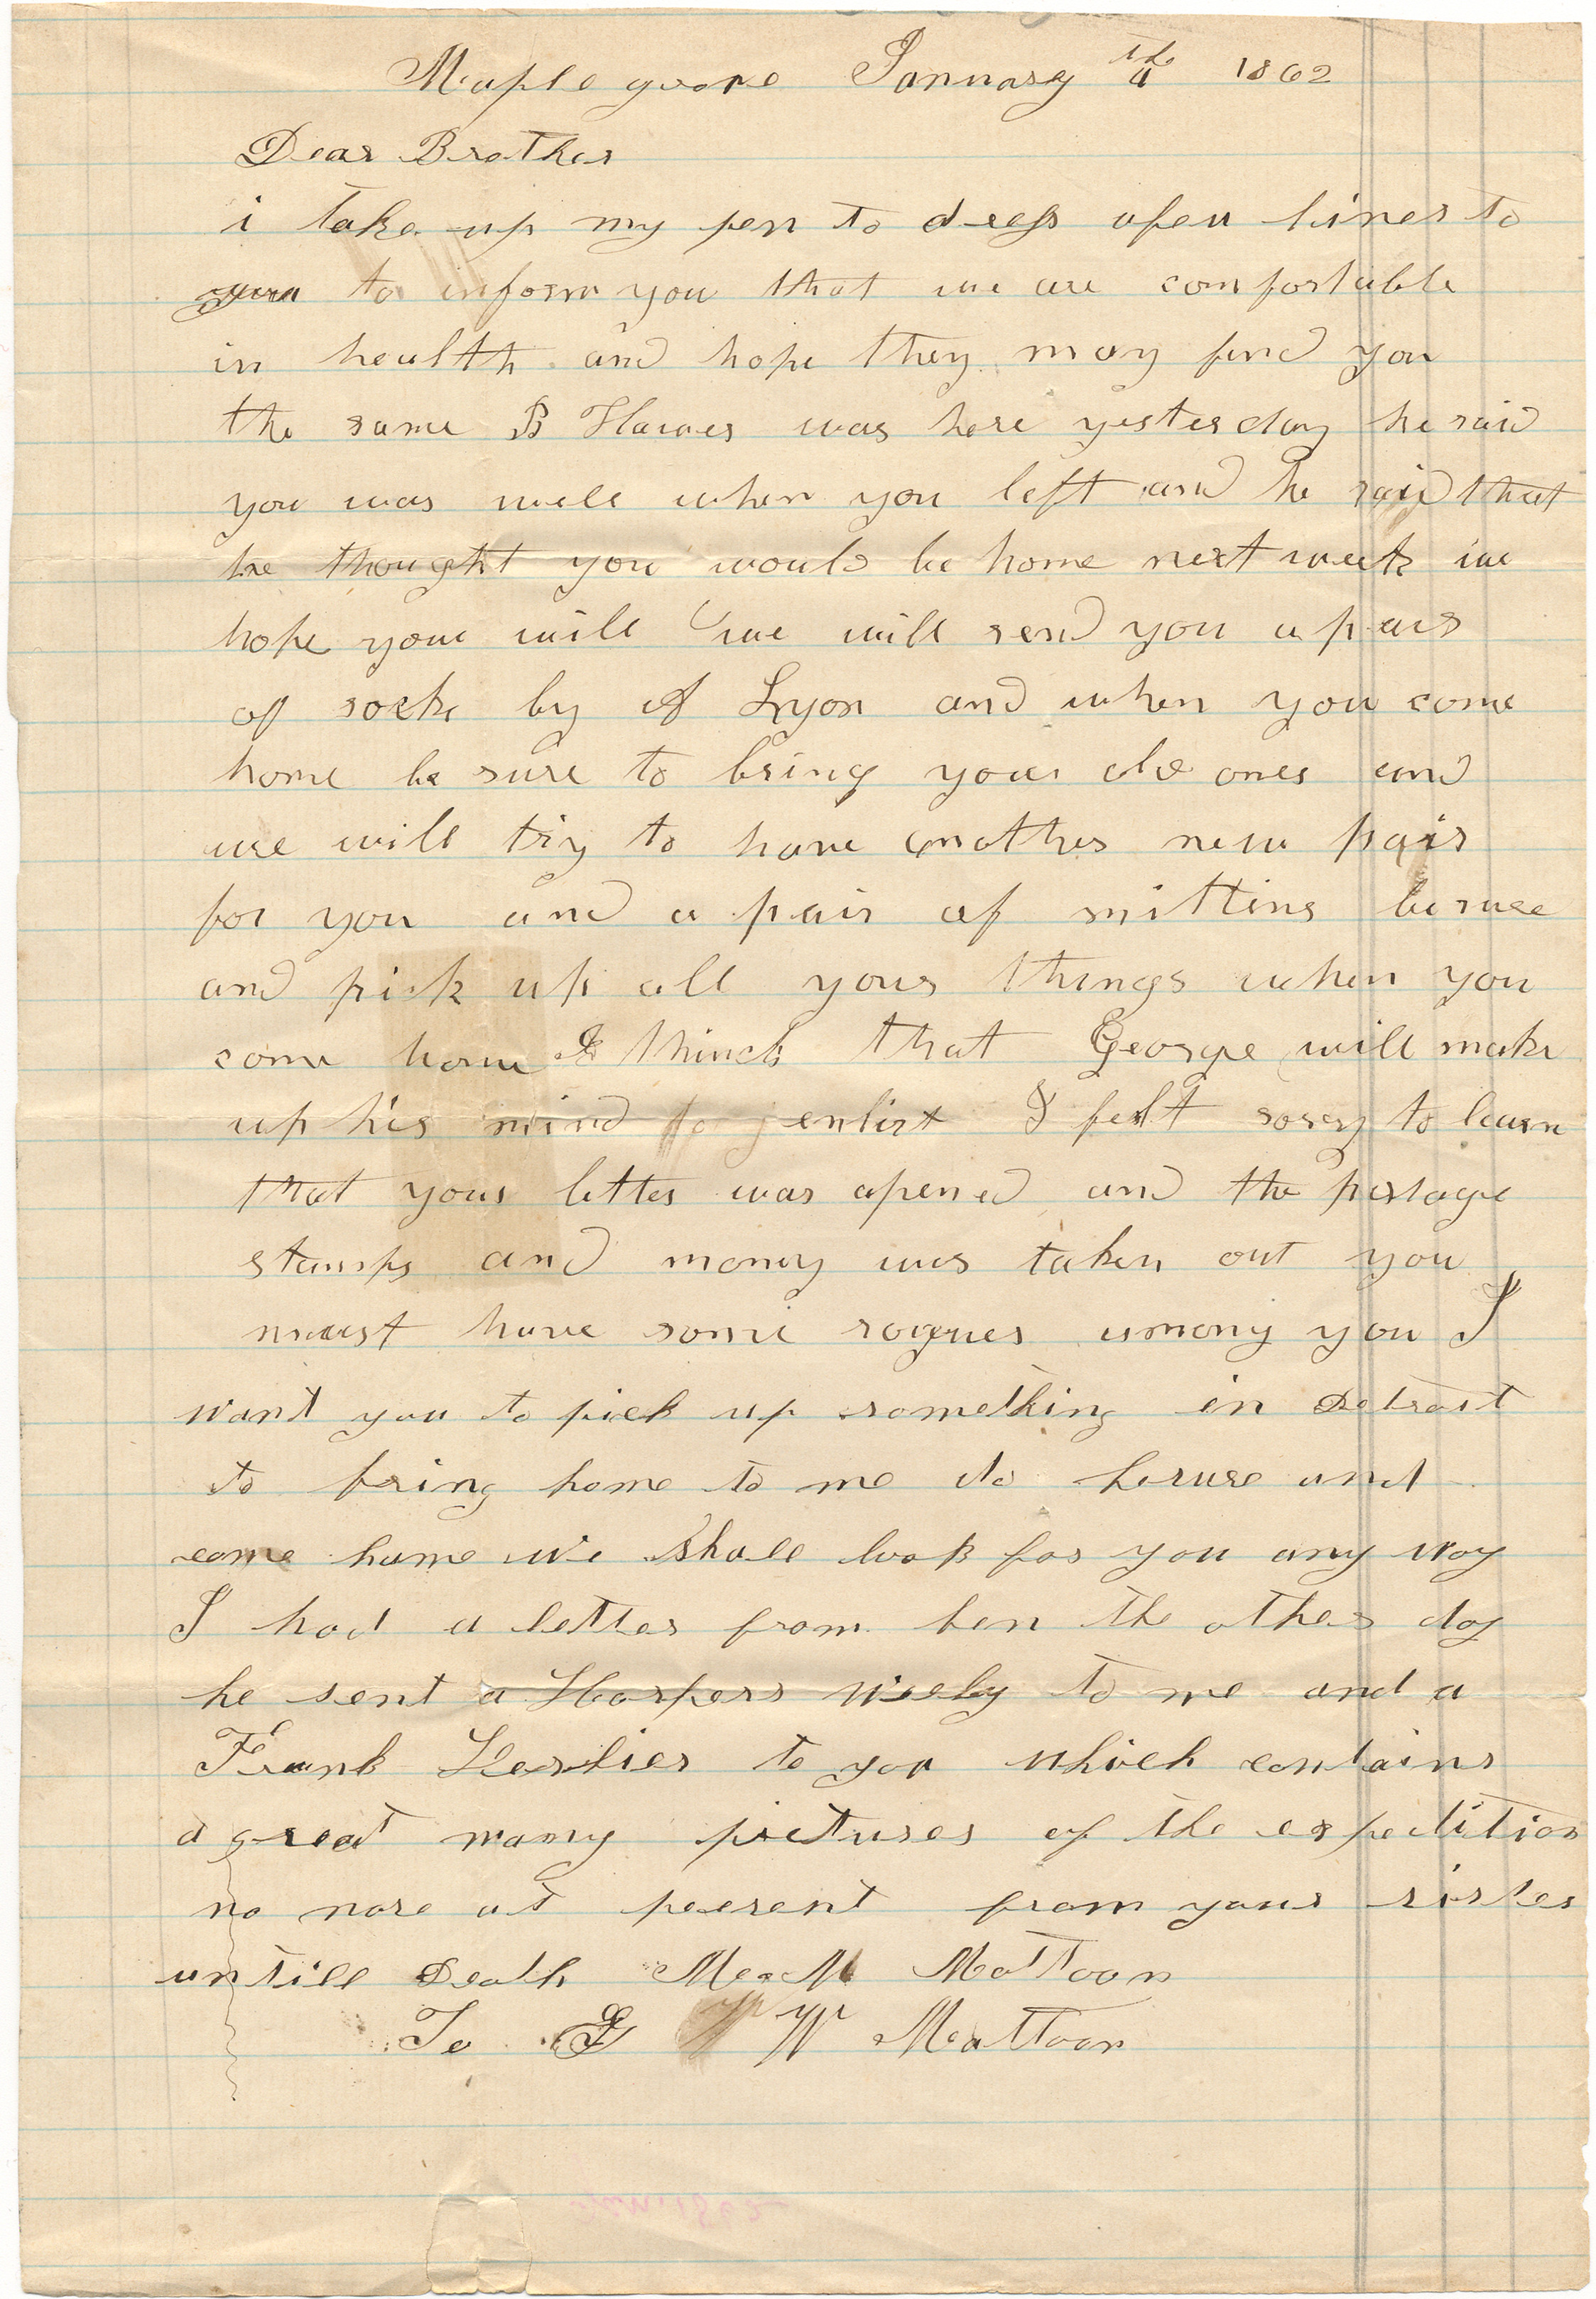 Maple grove January 4th 1862
Dear Brother
i take up my pen to drop a few lines to
you to inform you that we are comfortable
in health and hope they may find you
the same B Hawes was here yesterday he said
you was well when you left and he said that
he thought you would be home next week we
hope you will we will send you a pair
of socks by A Lyon and when you come
home be sure to bring your old ones and
we will try to have another new pair
for you and a pair of mittins be sure
and pick up all your things when you
come home I think that George will make
up his mind to enlist I felt sorry to learn
that your letter was opened and the postage
stamps and money was taken out you
must have some rogues among you I
want you to pick up something in Detroit
to bring home to me do be sure and
come home we shall look for you any way
I had a letter from ben the other day
he sent a Harpers weekly to me and a
Frank Leslies to you which contains
a great many pictures of the expedition
no more at present from your sister
untill Death M M Mattoon
To G W Mattoon